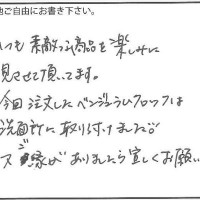 他ご自由にお書き下さい。
いつも素敵な商品を楽しみに
見させて頂いてます。
今回注文したペンジュラムクロックは
洗面所に取り付けました♡
ご縁がありましたら宜しくお願い